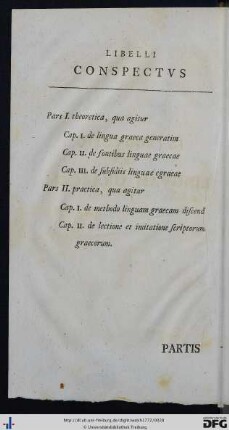 LIBELLI
CONSPECTVS
Pars I. theoretica, qua agitur
Cap. I. de lingua graeca generatim
Cap. II. de fontibus linguae graecae
Cap. III. de subsidiis linguae graecae
Pars II. practica, qua agitur
Cap. I. de methodo linguam graecam discend
Cap. II. de lectione et imitatione scriptorum
graecorum.
PARTIS
© Universitätsbibliothek Freiburg
DFG